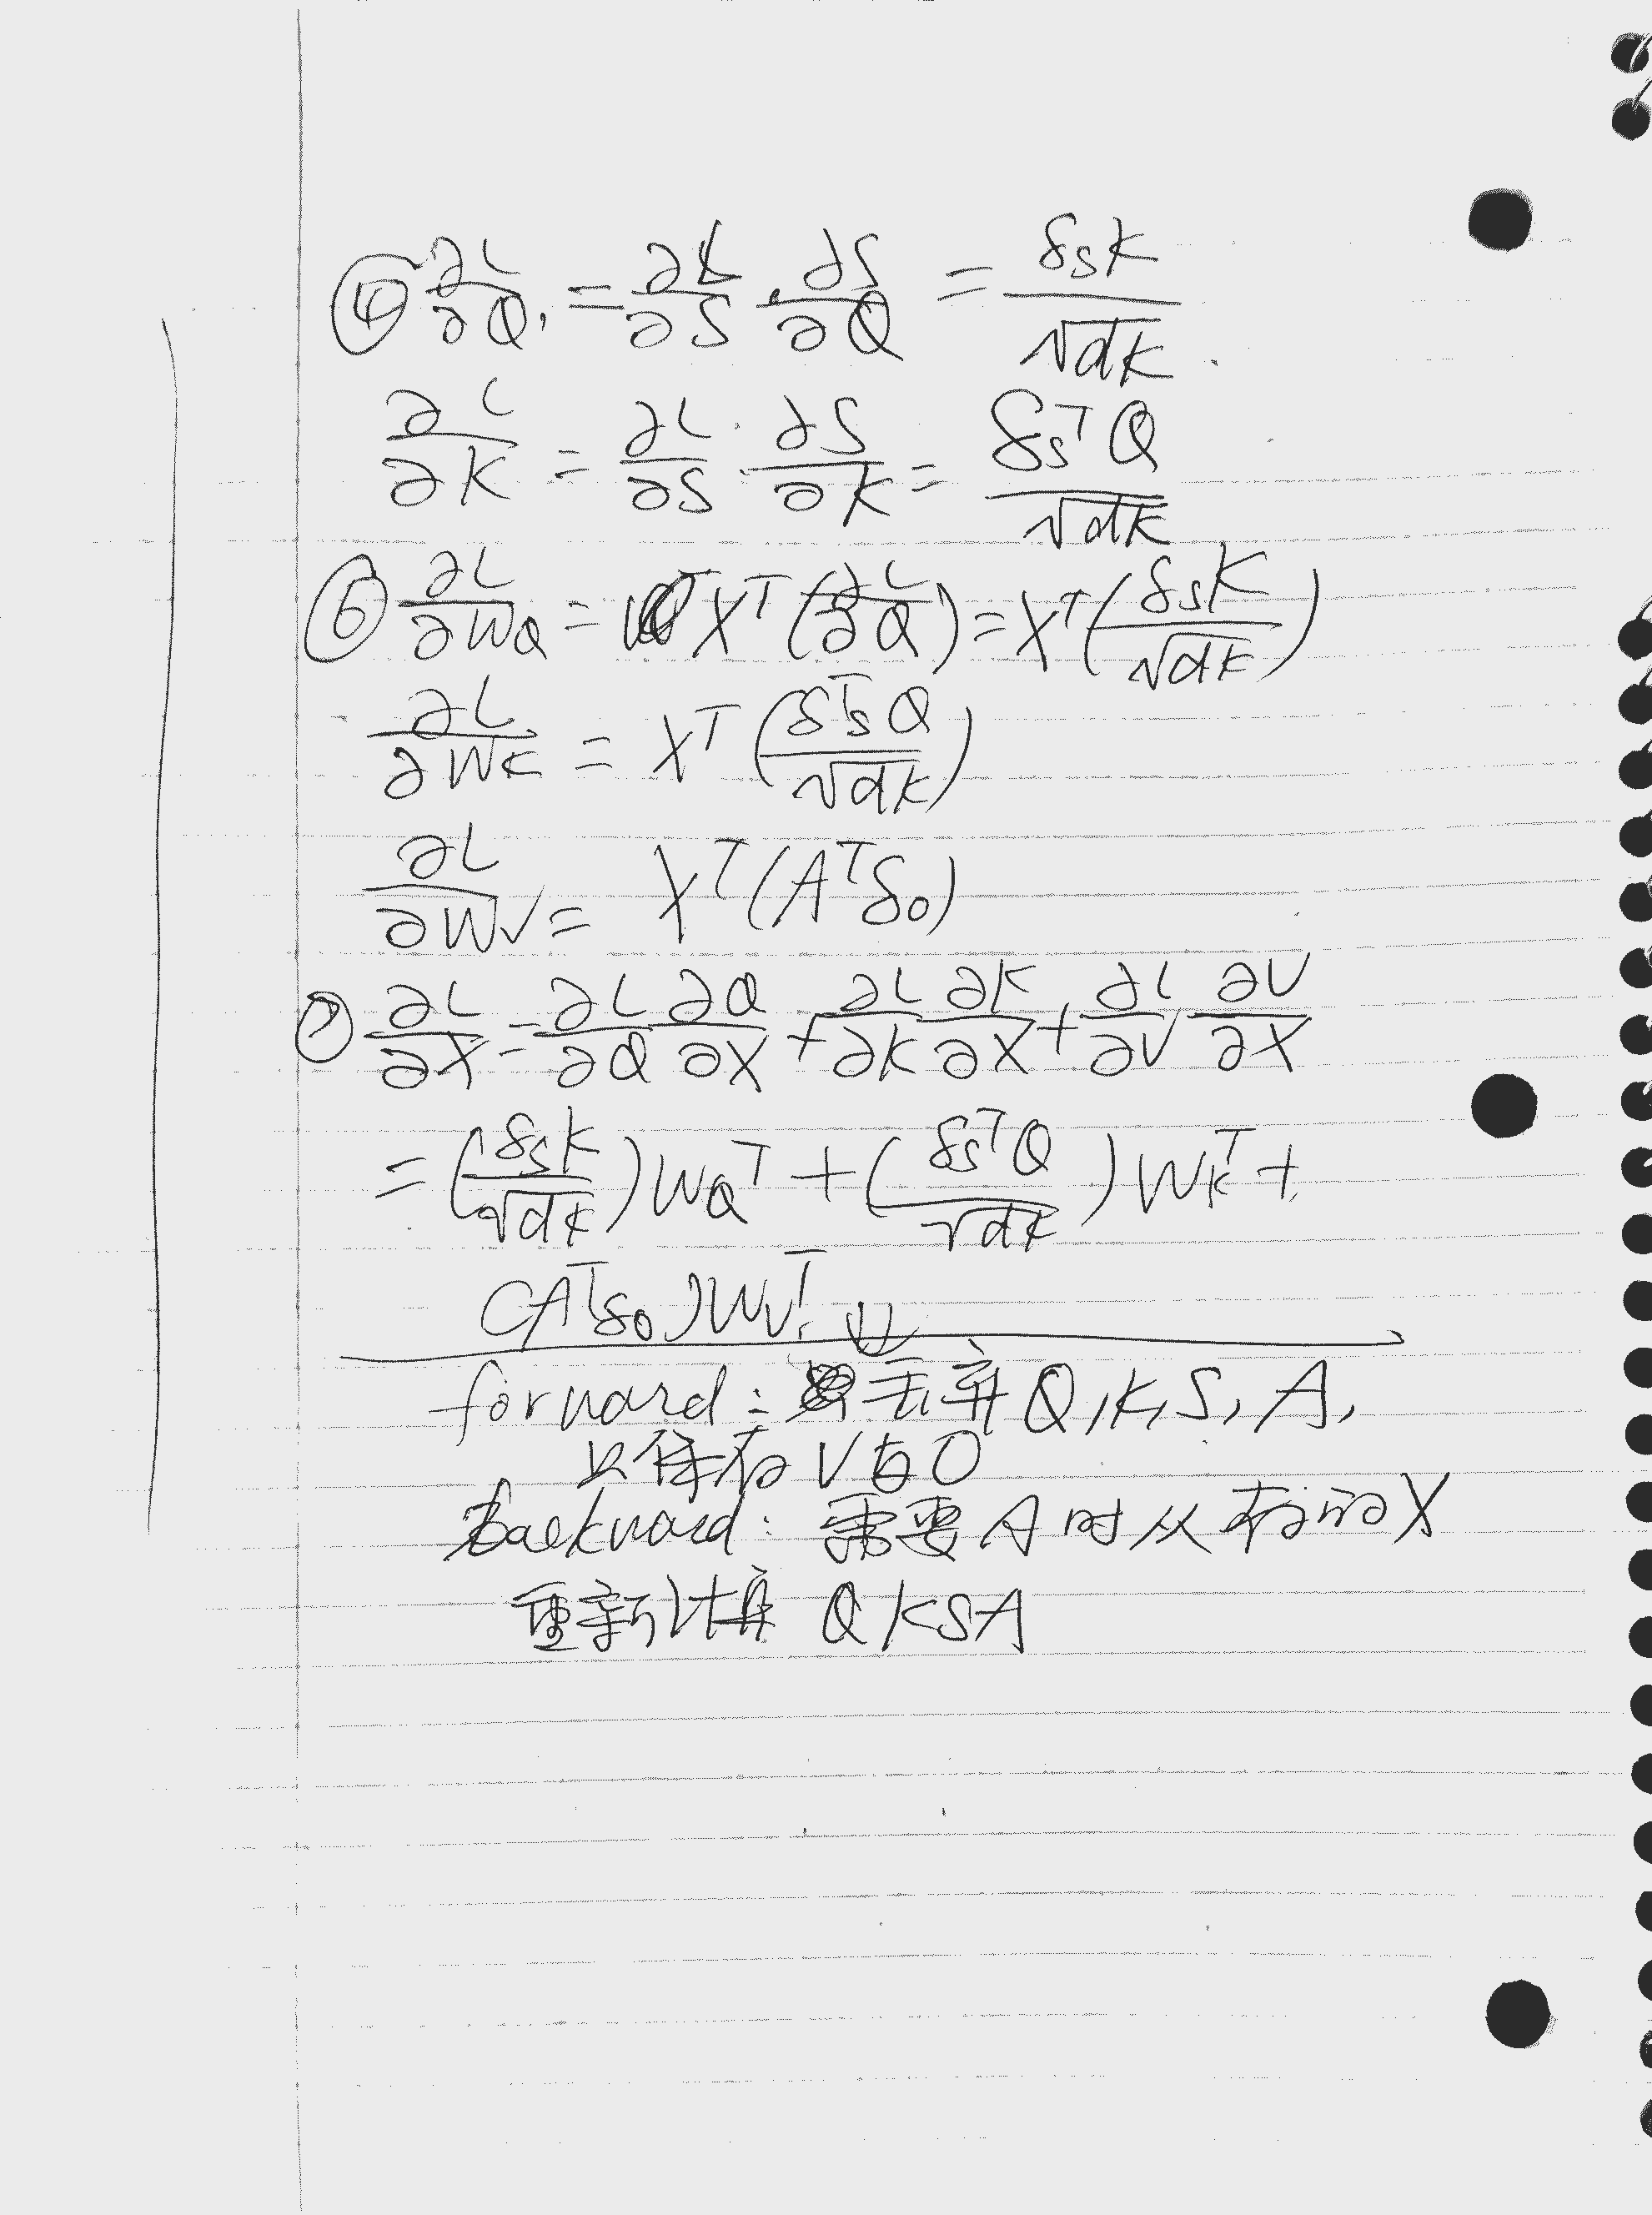 ④ ∂L/∂Q = ∂L/∂S · ∂S/∂Q = δsK/√dk
∂L/∂K = ∂L/∂S · ∂S/∂K = δsᵀQ/√dk
⑥ ∂L/∂WQ = Xᵀ(∂L/∂Q) = Xᵀ(δsK/√dk)
∂L/∂WK = Xᵀ(δsᵀQ/√dk)
∂L/∂WV = Xᵀ(Aᵀδo)
⑦ ∂L/∂X = ∂L/∂Q ∂Q/∂X + ∂L/∂K ∂K/∂X + ∂L/∂V ∂V/∂X
= (δsK/√dk)WQᵀ + (δsᵀQ/√dk)WKᵀ +
(Aᵀδo)WVᵀ
forward: 丢弃 Q, K, S, A,
只保存 V 与 O
Backward: 需要 A 时从存的 X
重新计算 QKSA